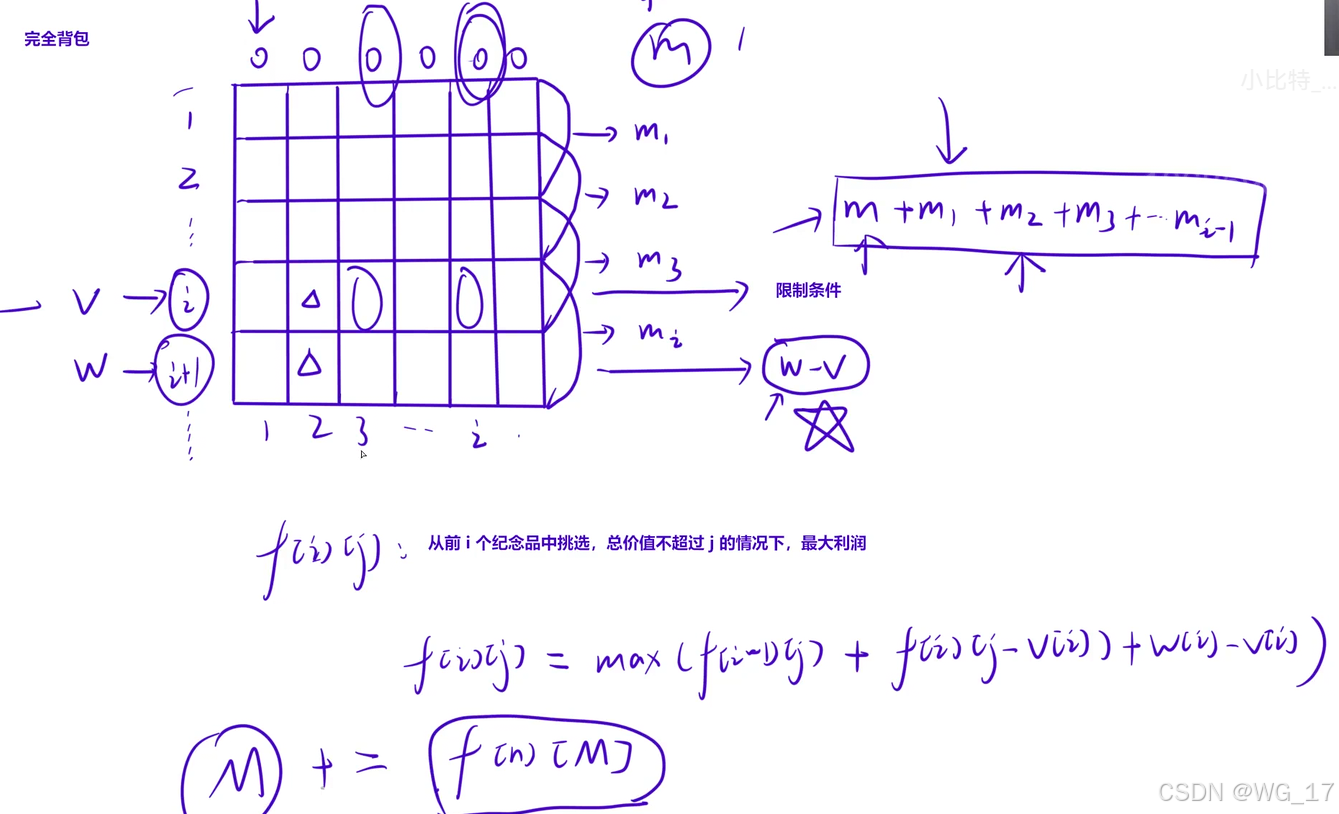 完全背包
0 0 0 0 0 0
m
小比特_...
1
m1
2
m2
m + m1 + m2 + m3 + ... mi-1
m3
V → i
限制条件
mi
W → i+1
W - V
1 2 3 -- i
f[i][j]: 从前 i 个纪念品中挑选，总价值不超过 j 的情况下，最大利润
f[i][j] = max(f[i-1][j] + f[i][j-V[i]] + W[i] - V[i])
M += f[n][M]
CSDN @WG_17